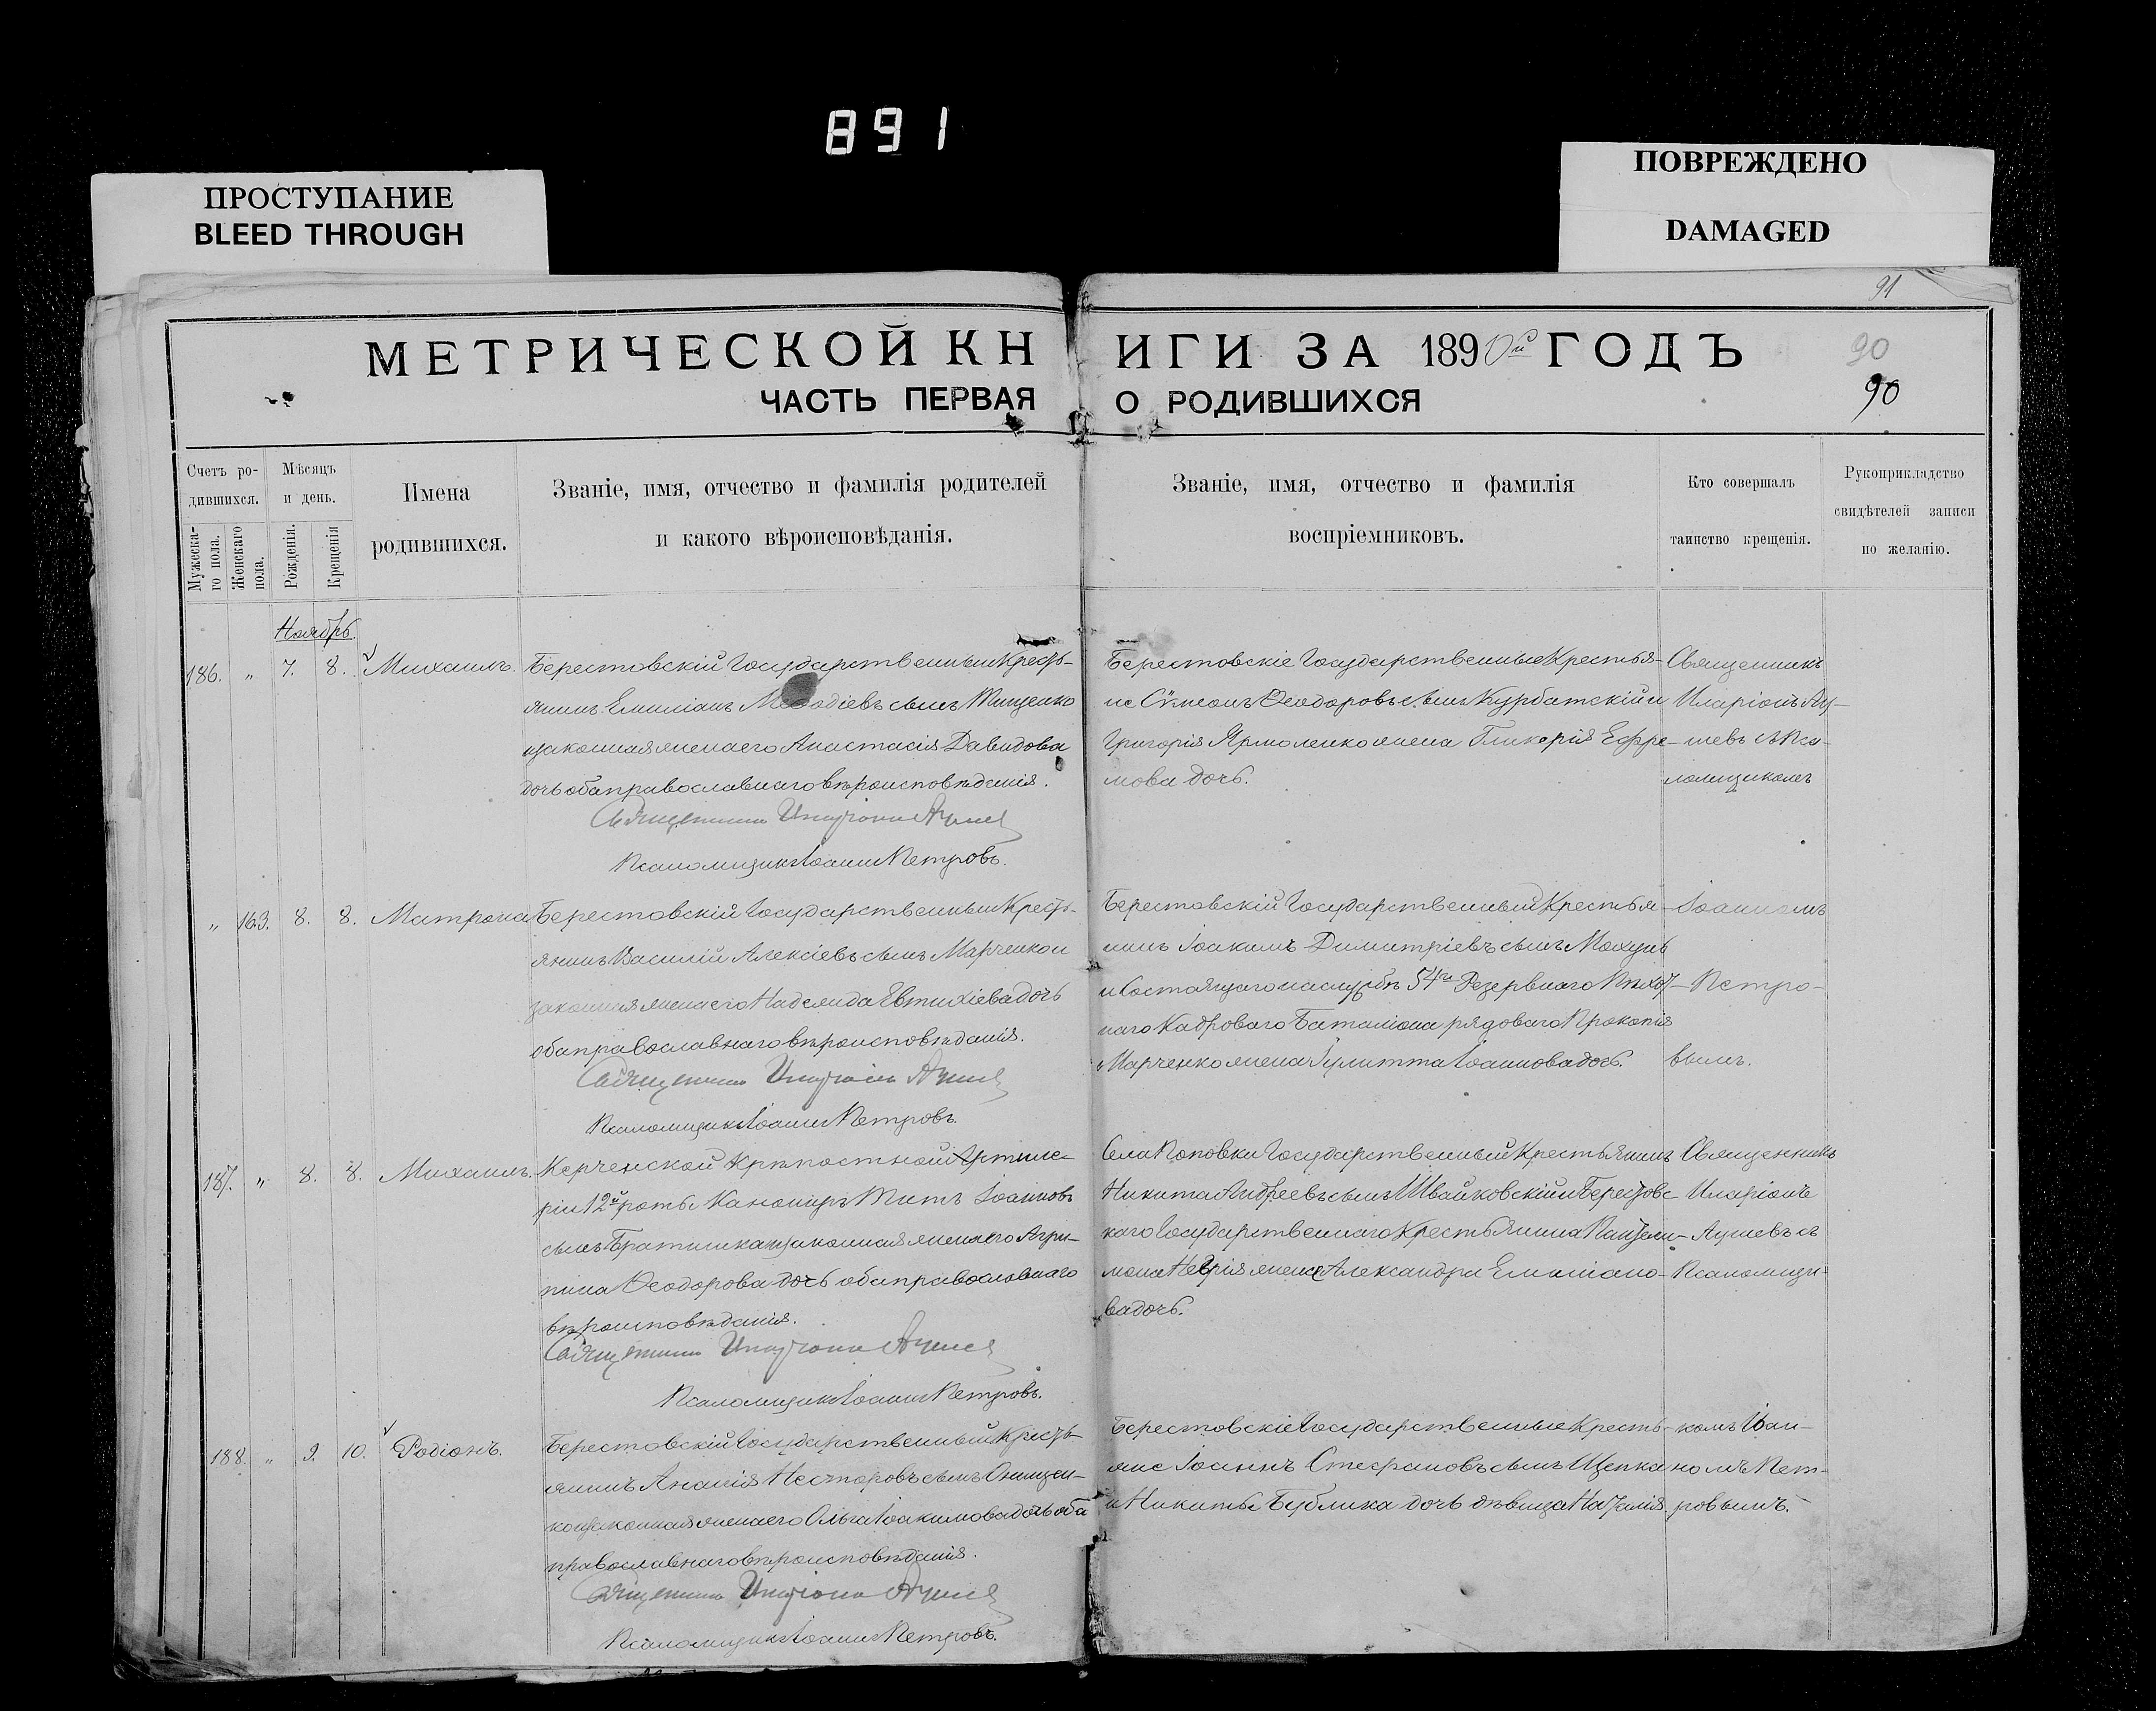 891
ПРОСТУПАНИЕ
BLEED THROUGH
ПОВРЕЖДЕНО
DAMAGED
91
МЕТРИЧЕСКОЙ КНИГИ ЗА 1890й ГОДЪ
90
ЧАСТЬ ПЕРВАЯ О РОДИВШИХСЯ
90
Счетъ ро-
дившихся.
Мужеска-
го пола.
Женскаго
пола.
Мѣсяцъ
и день.
Рожденія.
Крещенія
Имена
родившихся.
Званіе, имя, отчество и фамилія родителей
и какого вѣроисповѣданія.
Званіе, имя, отчество и фамилія
воспріемниковъ.
Кто совершалъ
таинство крещенія.
Рукоприкладство
свидѣтелей записи
по желанію.
Ноябрь
186. " 7. 8. Михаилъ.
Берестовскій Государственный Кресть-
янинъ Емиліанъ Меѳодіевъ сынъ Тищенко
и законная жена его Анастасія Давидова
дочь оба православнаго вѣроисповѣданія.
Священникъ Иларіонъ
Псаломщикъ Іоаннъ Петровъ.
Берестовскіе Государственные Крестья-
не Сѵмеонъ Ѳеодоровъ сынъ Курбатскій и
Григорія Ярмоленко жена Гликерія Ефре-
мова дочь.
Священникъ
Иларіонъ
съ Пса-
ломщикомъ
" 163. 8. 8. Матрона
Берестовскій Государственный Кресть-
янинъ Василій Алексіевъ сынъ Марченко и
законная жена его Надежда Евтихіева дочь
оба православнаго вѣроисповѣданія.
Священникъ Иларіонъ
Псаломщикъ Іоаннъ Петровъ.
Берестовскій Государственный Крестья-
нинъ Іоакимъ Димитріевъ сынъ
и Состоящаго на службѣ 54го Резервнаго Пѣхот-
наго Кадроваго Баталіона рядоваго Прокопія
Марченко жена Іулитта Іоаннова дочь.
Іоанномъ
Петро-
вымъ.
187. " 8. 8. Михаилъ.
Керченской Крѣпостной Артиле-
ріи 12й роты Канониръ Титъ Іоанновъ
сынъ и законная жена его Агри-
пина Ѳеодорова дочь оба православнаго
вѣроисповѣданія.
Священникъ Иларіонъ
Псаломщикъ Іоаннъ Петровъ.
Села Поповки Государственный Крестьянинъ
Никита Андреевъ сынъ Швайковскій и Берестовс-
каго Государственнаго Крестьянина Пантели-
мона жена Александра Емиліано-
ва дочь.
Священникъ
Иларіонъ
съ
Псаломщи-
188. " 9. 10. Родіонъ.
Берестовскій Государственный Кресть-
янинъ Ананія Несторовъ сынъ Онищен-
ко и законная жена его Ольга Іоакимова дочь оба
православнаго вѣроисповѣданія.
Священникъ Иларіонъ
Псаломщикъ Іоаннъ Петровъ.
Берестовскіе Государственные Кресть-
яне Іоаннъ Стефановъ сынъ Щепка
и Никиты Бублика дочь дѣвица Наталія
комъ Іоан-
номъ Пет-
ровымъ.